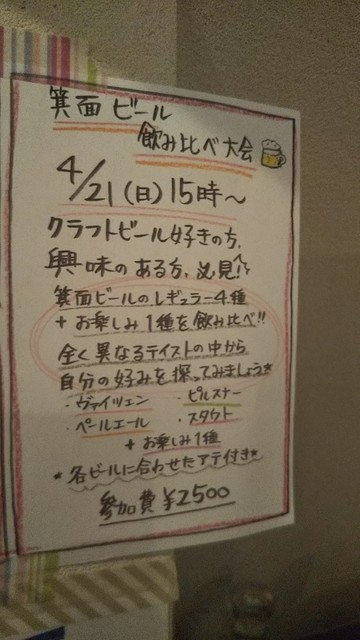 箕面 ビール
飲み比べ大会
4/21 (日) 15時〜
クラフトビール好きの方、
興味のある方、必見!!
箕面ビールのレギュラー4種
+ お楽しみ1種を飲み比べ!!
全く異なるテイストの中から
自分の好みを探ってみましょう*
・ヴァイツェン ・ピルスナー
・ペールエール ・スタウト
+ お楽しみ1種
*各ビールに合わせたアテ付き*
参加費 ¥2500